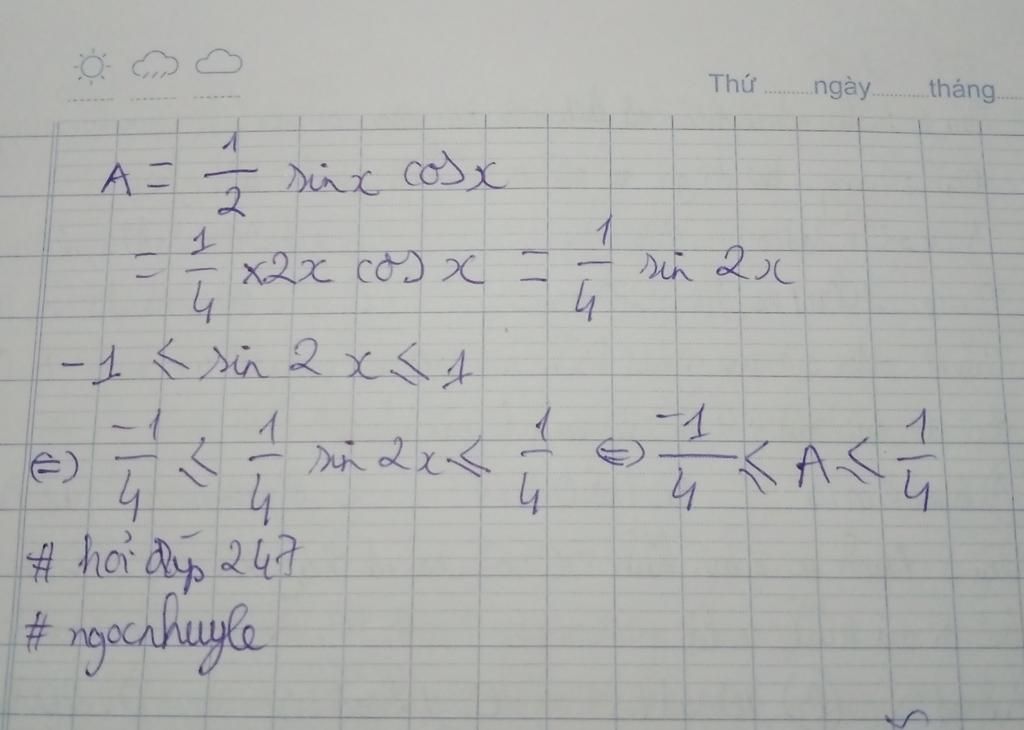 Thứ ..........ngày..........tháng.....
A = 1/2 sin x cos x
= 1/4 × 2x cos x = 1/4 sin 2x
-1 ≤ sin 2x ≤ 1
⇔ -1/4 ≤ 1/4 sin 2x ≤ 1/4 ⇔ -1/4 ≤ A ≤ 1/4
# hỏi đáp 247
# ngocnhuyle